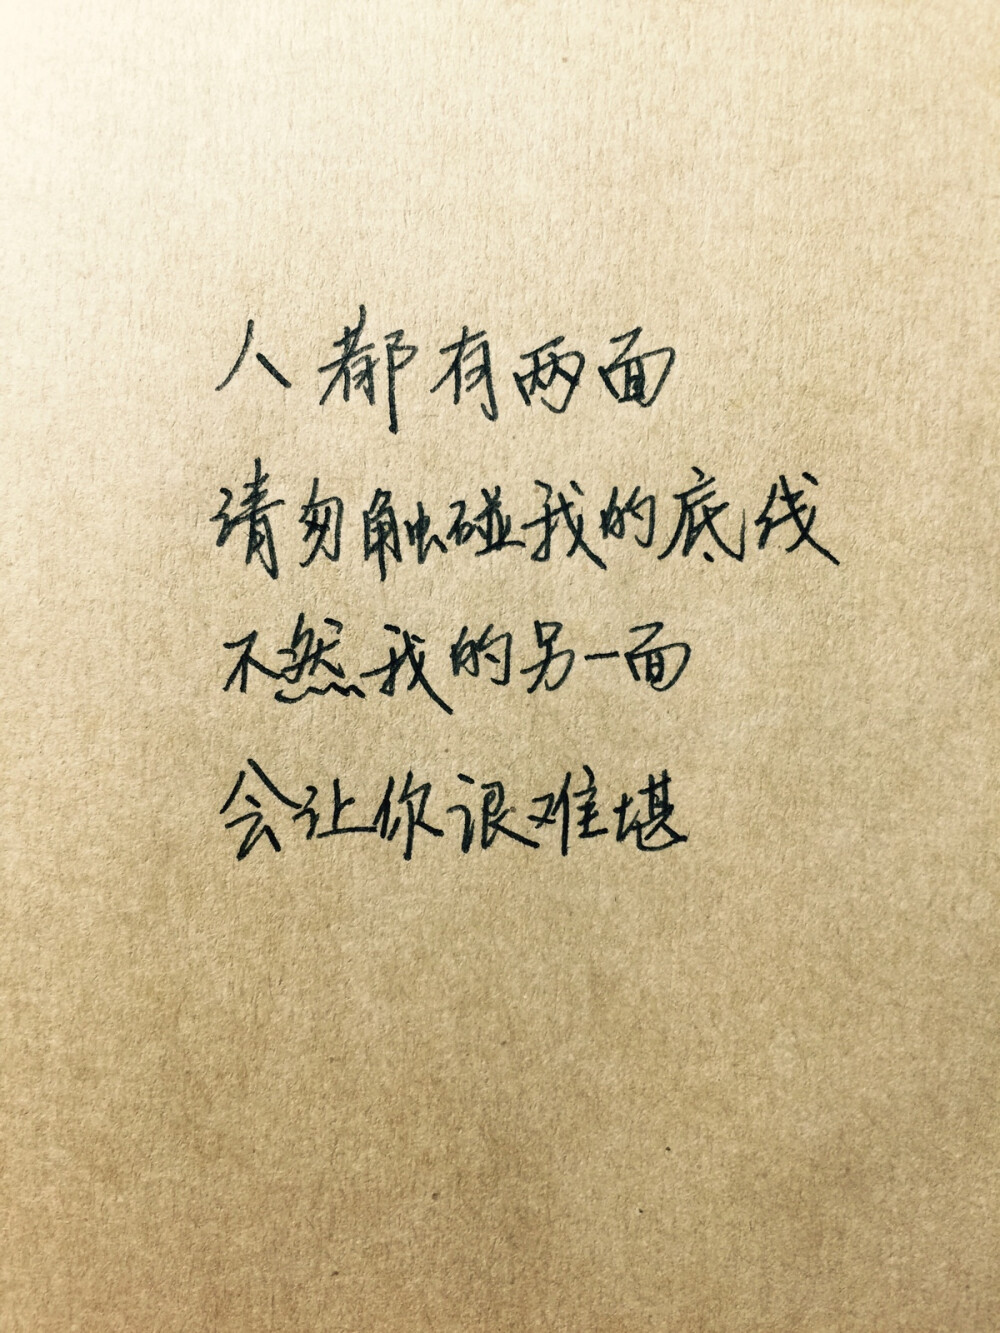 人都有两面
请勿触碰我的底线
不然我的另一面
会让你很难堪